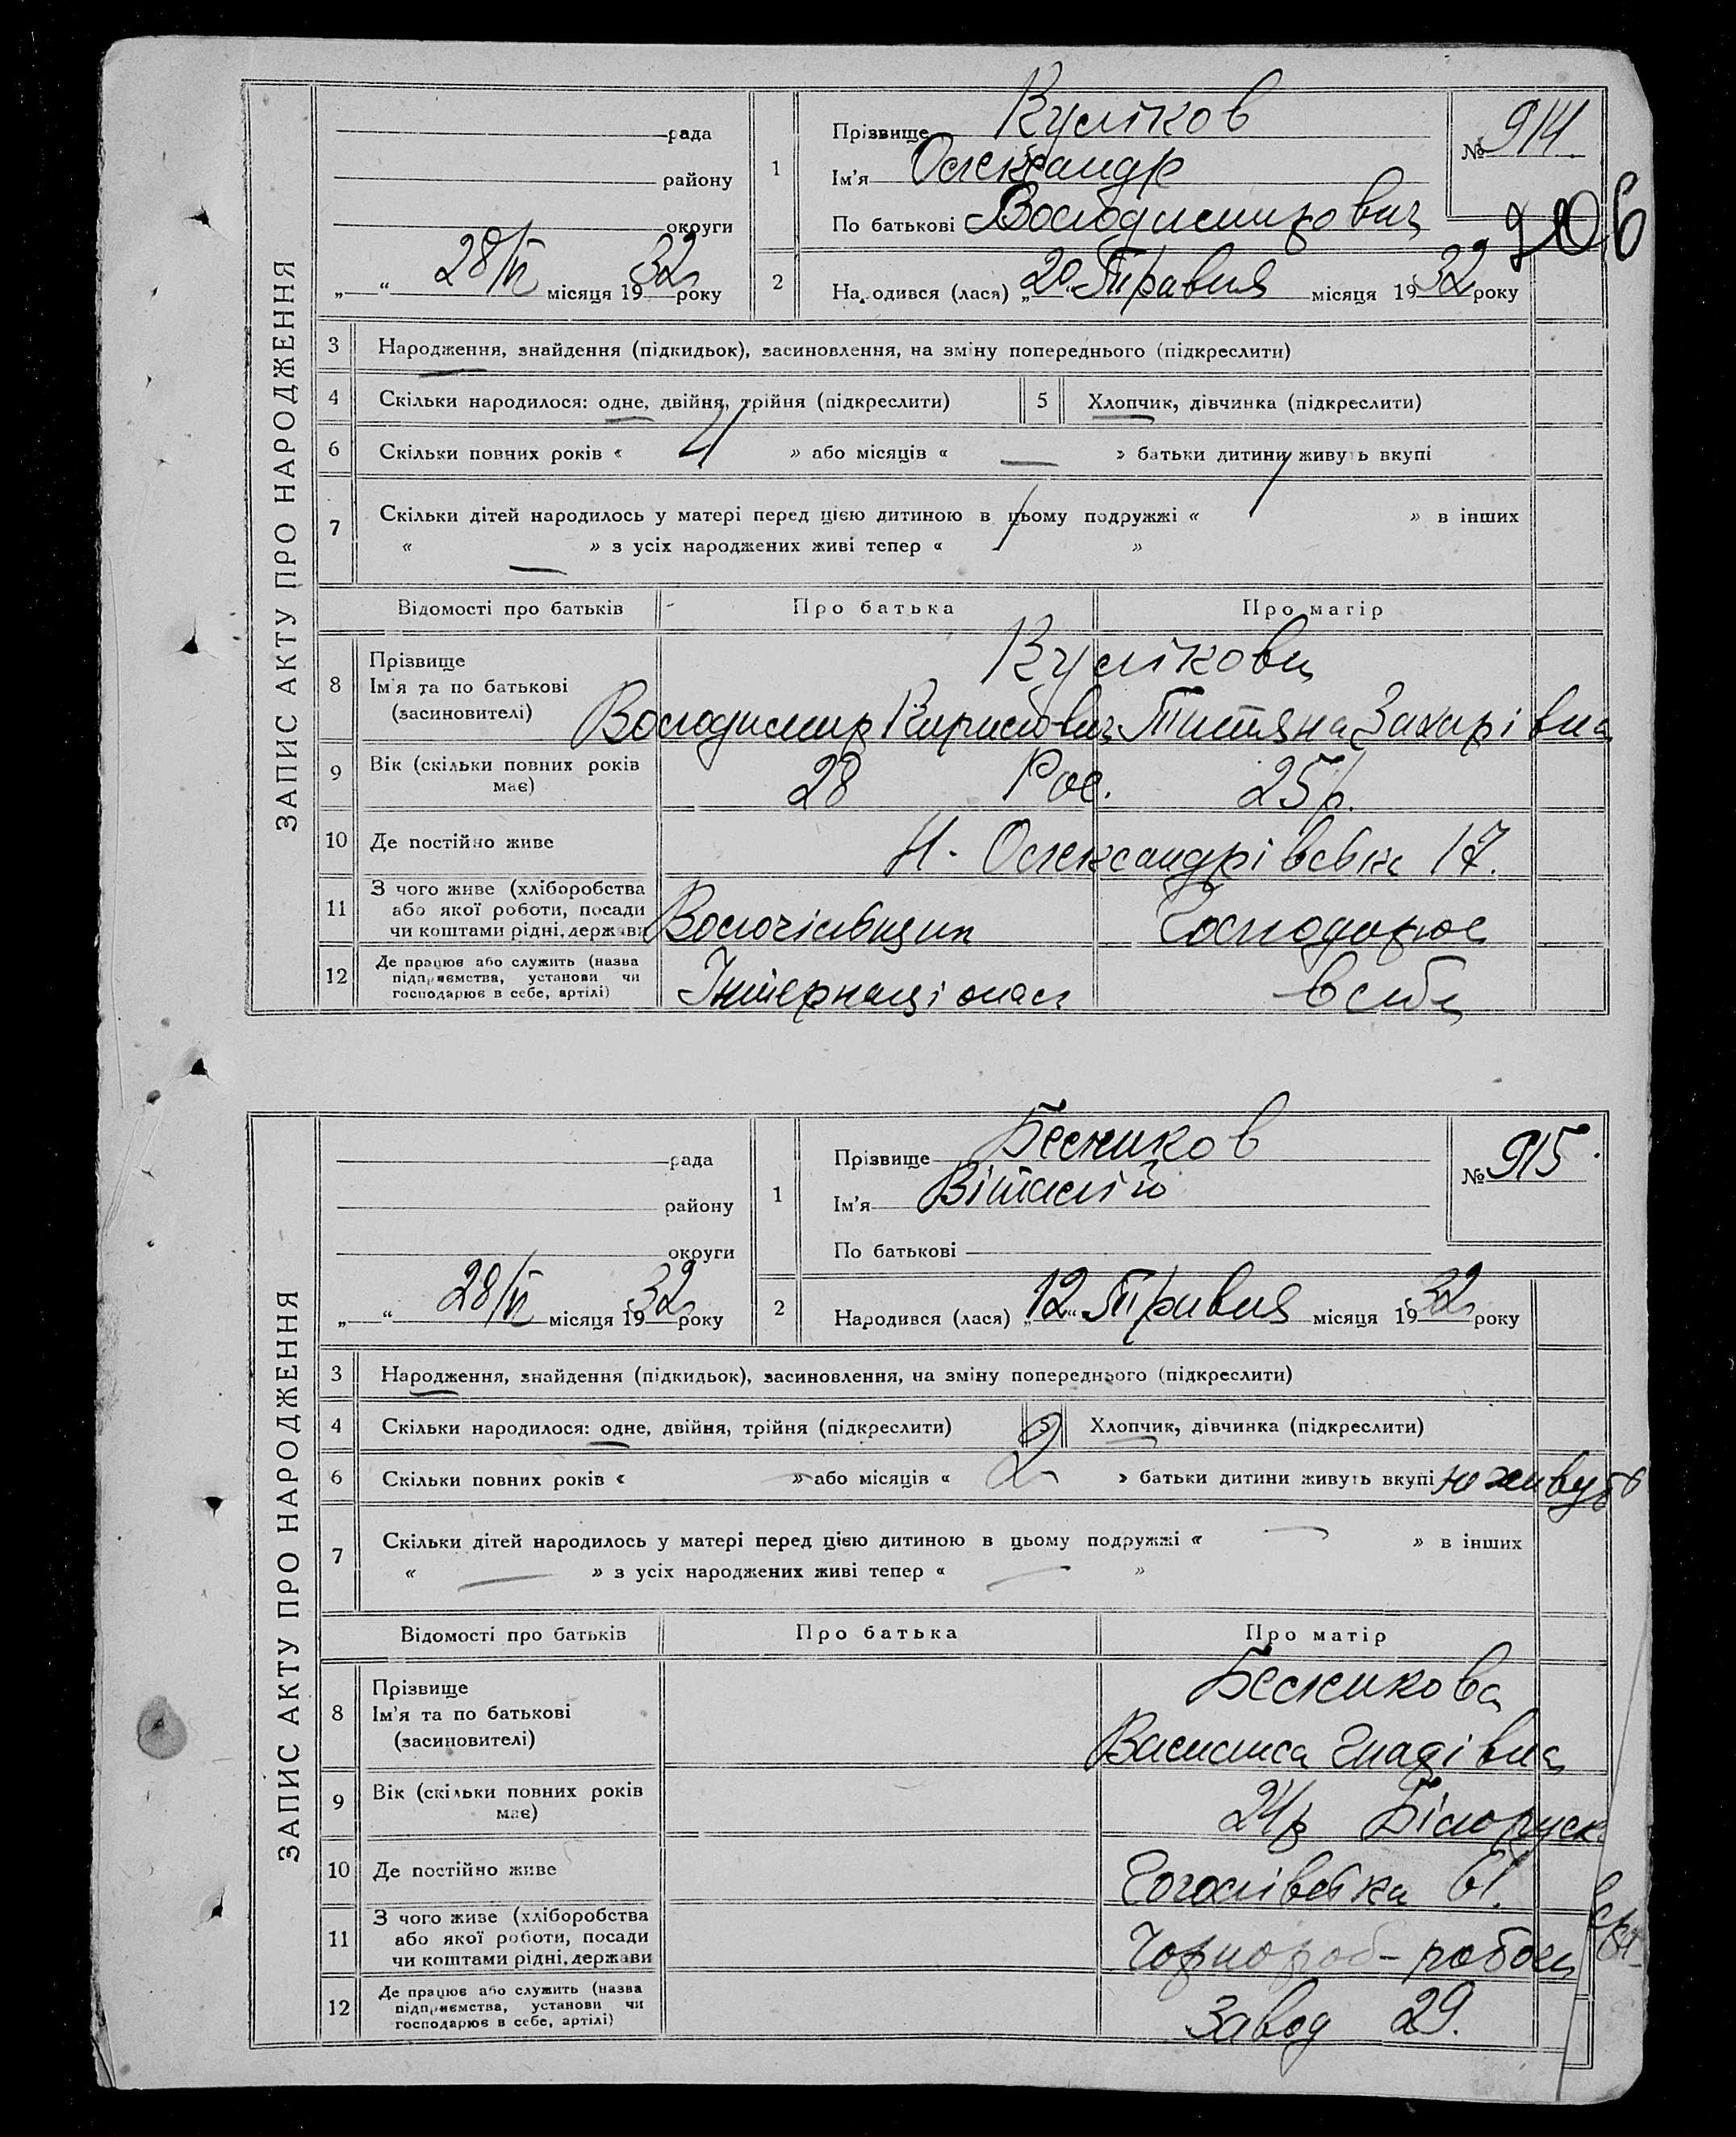 ЗАПИС АКТУ ПРО НАРОДЖЕННЯ
рада
району
округи
„ “ 28/VI місяця 1932 року
1
Прізвище Куліков
Ім'я Олександр
По батькові Володимирович
№ 914.
206
2
Народився (лася) „20. Травня місяця 1932 року
3 Народження, знайдення (підкидьок), засиновлення, на зміну попереднього (підкреслити)
4 Скільки народилося: одне, двійня, трійня (підкреслити) 5 Хлопчик, дівчинка (підкреслити)
6 Скільки повних років « 4 » або місяців « — » батьки дитини живуть вкупі
7 Скільки дітей народилось у матері перед цією дитиною в цьому подружжі « 1 » в інших
« — » з усіх народжених живі тепер « 1 »
Відомості про батьків Про батька Про матір
8 Прізвище
Ім'я та по батькові
(засновителі)
Кулікови
Володимир Кирилович Титяна Захарівна
9 Вік (скільки повних років має) 28 Рос. 25р.
10 Де постійно живе Н. Олександрівська 17.
11 З чого живе (хліборобства або якої роботи, посади чи коштами рідні, держави Волочільщик Господарює
12 Де працює або служить (назва підприємства, установи чи господарює в себе, артілі) Інтернаціонал в себе
ЗАПИС АКТУ ПРО НАРОДЖЕННЯ
рада
району
округи
„ “ 28/VI місяця 1932 року
1
Прізвище
Ім'я Віталій
По батькові
№ 915.
2
Народився (лася) „12“ Травня місяця 1932 року
3 Народження, знайдення (підкидьок), засиновлення, на зміну попереднього (підкреслити)
4 Скільки народилося: одне, двійня, трійня (підкреслити) 5 Хлопчик, дівчинка (підкреслити)
6 Скільки повних років « » або місяців « 2 » батьки дитини живуть вкупі не живуть
7 Скільки дітей народилось у матері перед цією дитиною в цьому подружжі « — » в інших
« — » з усіх народжених живі тепер « — »
Відомості про батьків Про батька Про матір
8 Прізвище
Ім'я та по батькові
(засиновителі)
Василиса
9 Вік (скільки повних років має) 24р Білоруск.
10 Де постійно живе Гоголівська 61.
11 З чого живе (хліборобства або якої роботи, посади чи коштами рідні, держави Чорнороб-
12 Де працює або служить (назва підприємства, установи чи господарює в себе, артілі) Завод 29.